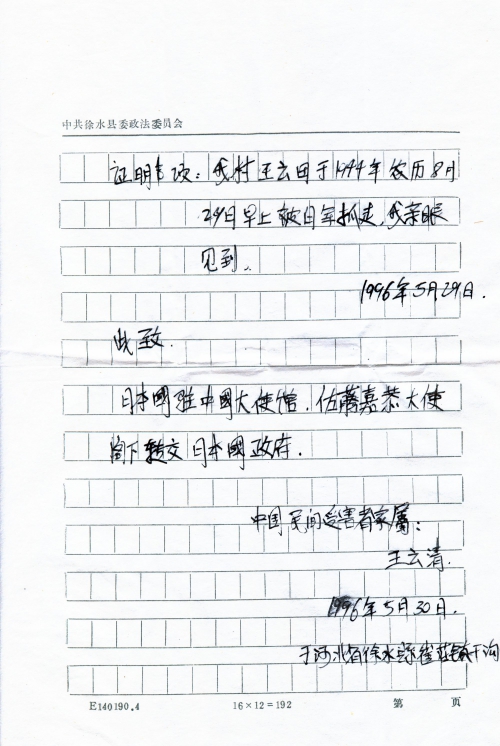 中共徐水县委政法委员会
证明事项：我村王云田于1944年农历8月
29日早上被日军抓走，我亲眼
见到。
1996年5月29日.
此致.
日本國驻中國大使馆.佐藤嘉恭大使
阁下转交日本國政府.
中国民间受害者家属：
王云清.
1996年5月30日.
于河北省徐水县崔庄镇干沟
E140190.4
16×12=192
第 页